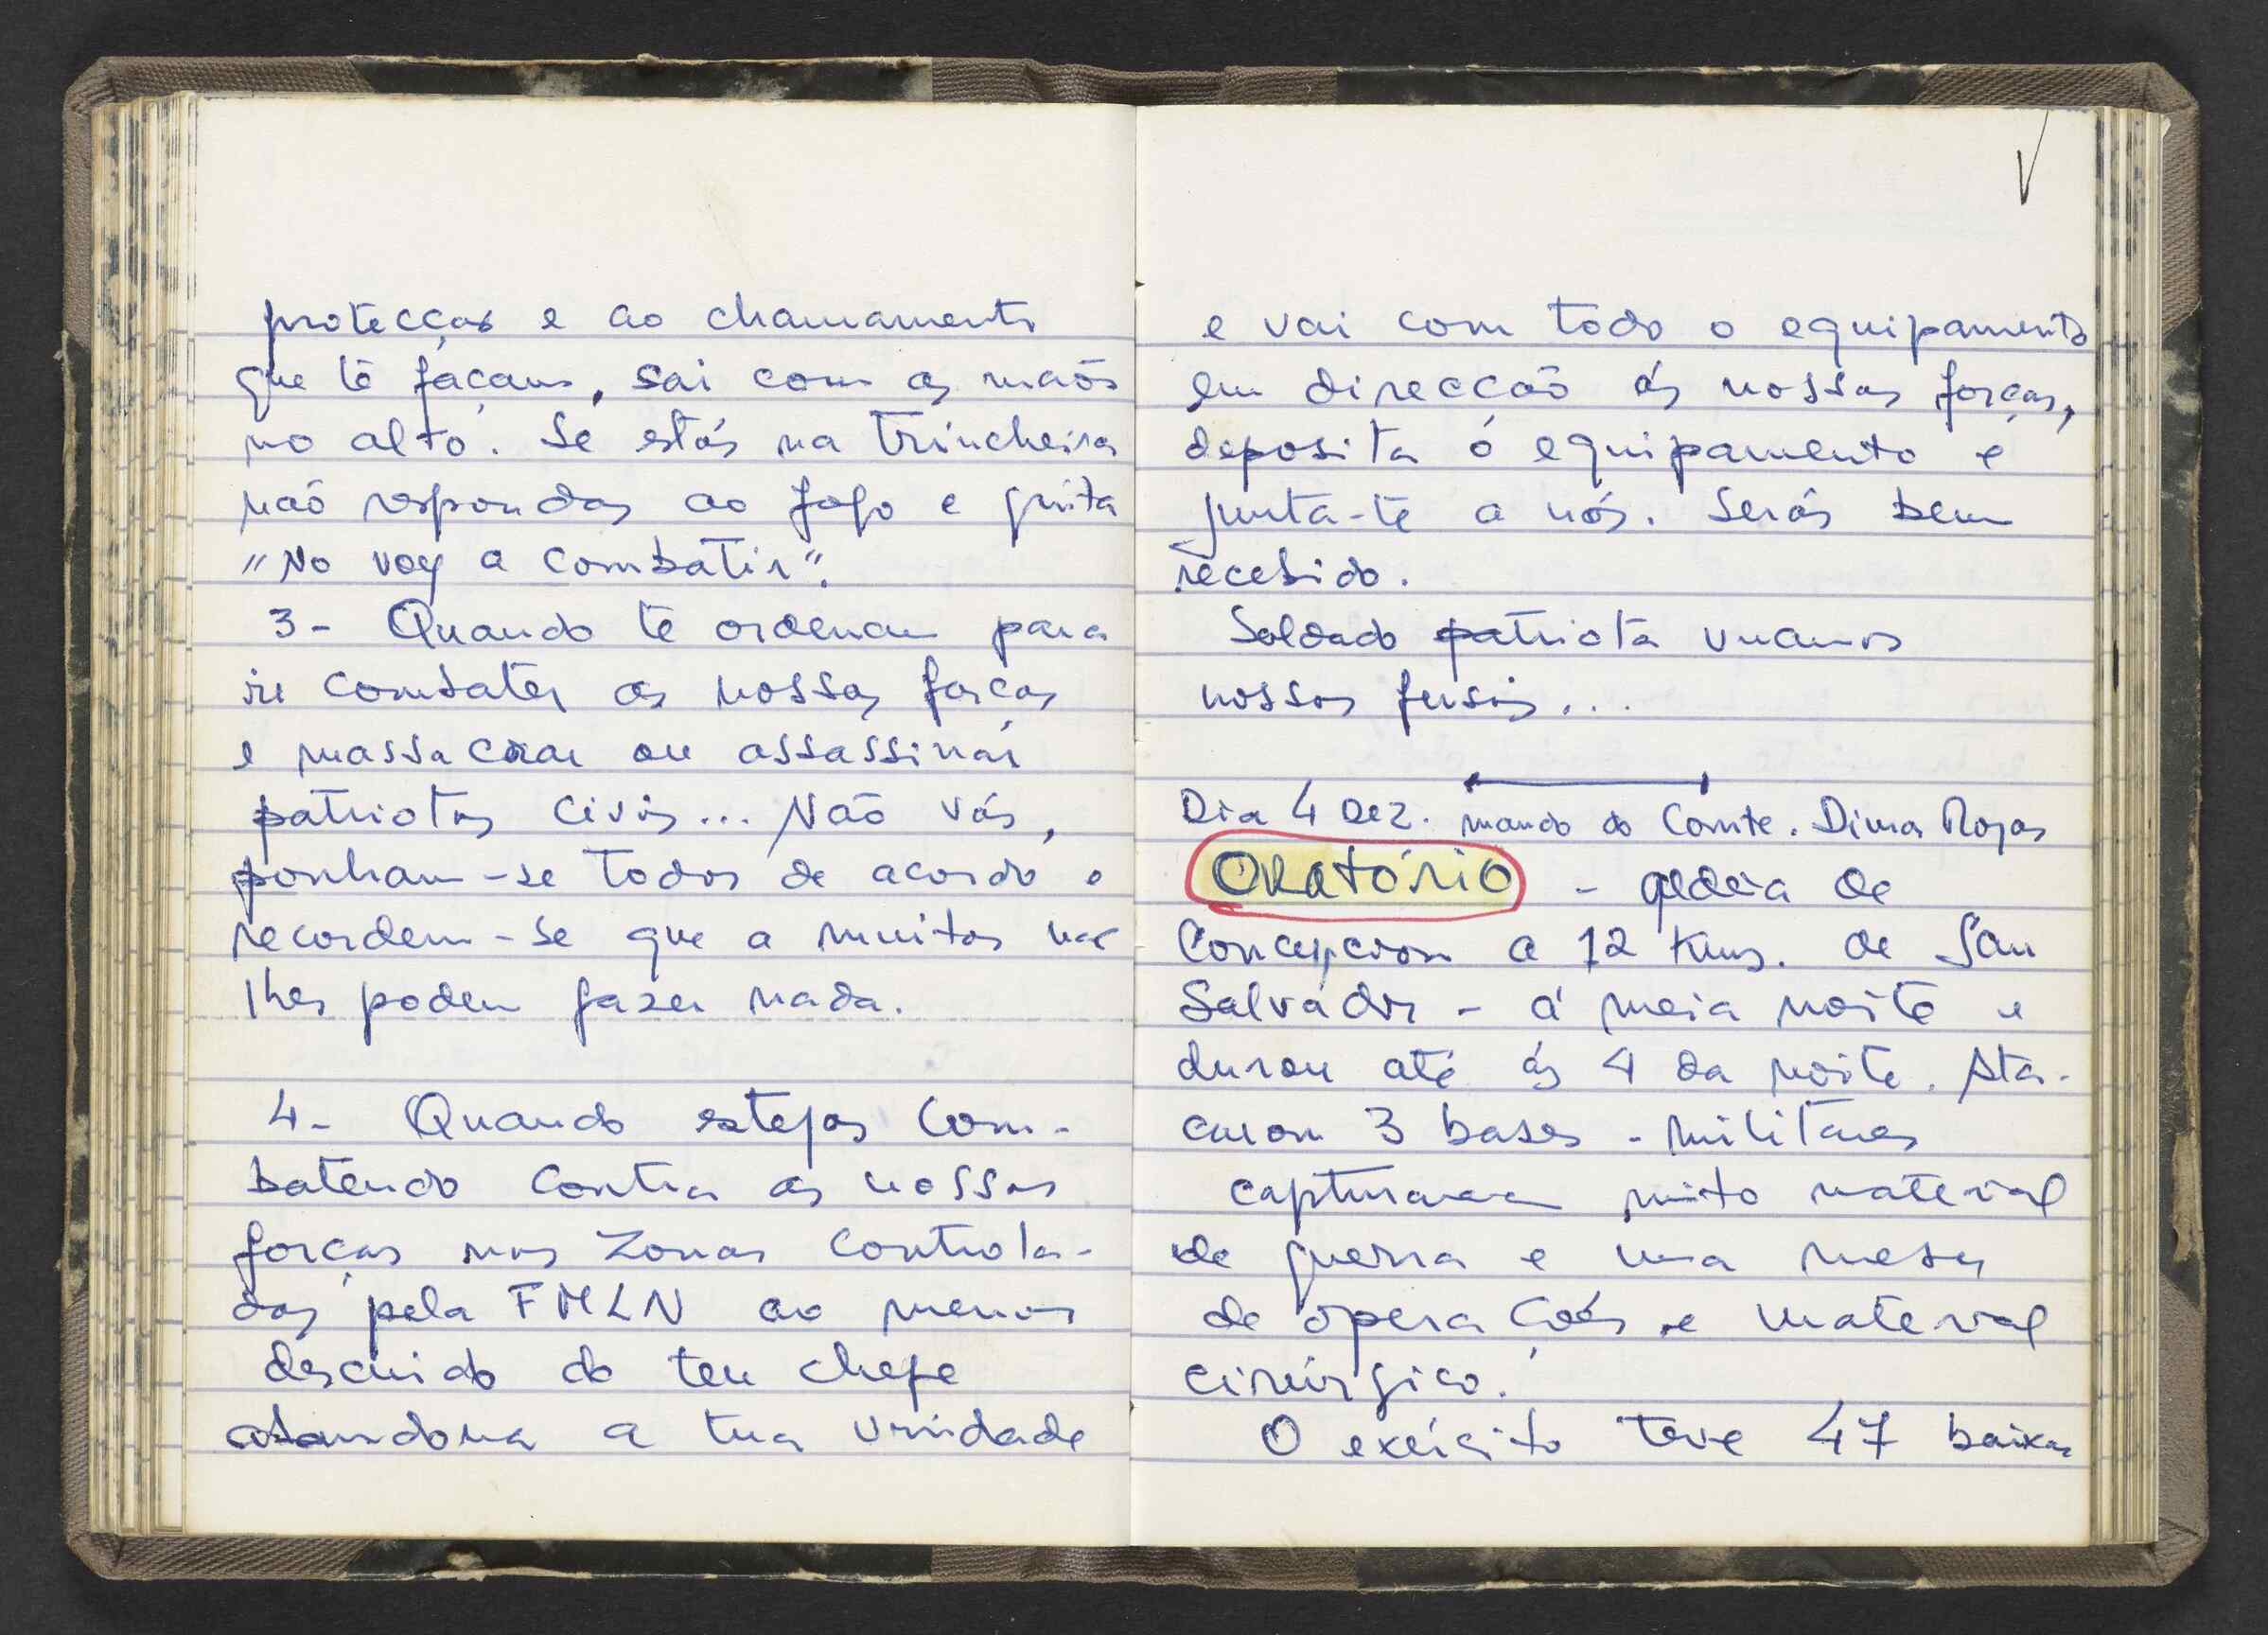 protecção e ao chamamento
que te façam, sai com as mãos
no alto. Se estás na trincheira
não respondas ao fogo e grita
"No voy a combatir".
3- Quando te ordenam para
ir combater as nossas forças
e massacrar ou assassinar
patriotas civis... Não vás,
ponham-se todos de acordo e
recordem-se que a muitos não
lhes podem fazer nada.
4- Quando estejas com-
batendo contra as nossas
forças nas zonas controla-
das pela FMLN ao menor
descuido do teu chefe
abandona a tua unidade
e vai com todo o equipamento
em direcção ás nossas forças,
deposita o equipamento e
junta-te a nós. Serás bem
recebido.
Soldado patriota unamos
nossos fusis...
Dia 4 Dez. mando do Comte. Dimas Rojas
Oratório - aldeia de
Concepcion a 12 kms. de San
Salvador - á meia noite e
durou até ás 4 da noite. Ata-
caram 3 bases - militares
capturaram muito material
de guerra e uma mesa
de operações e material
cirúrgico.
O exército teve 47 baixas